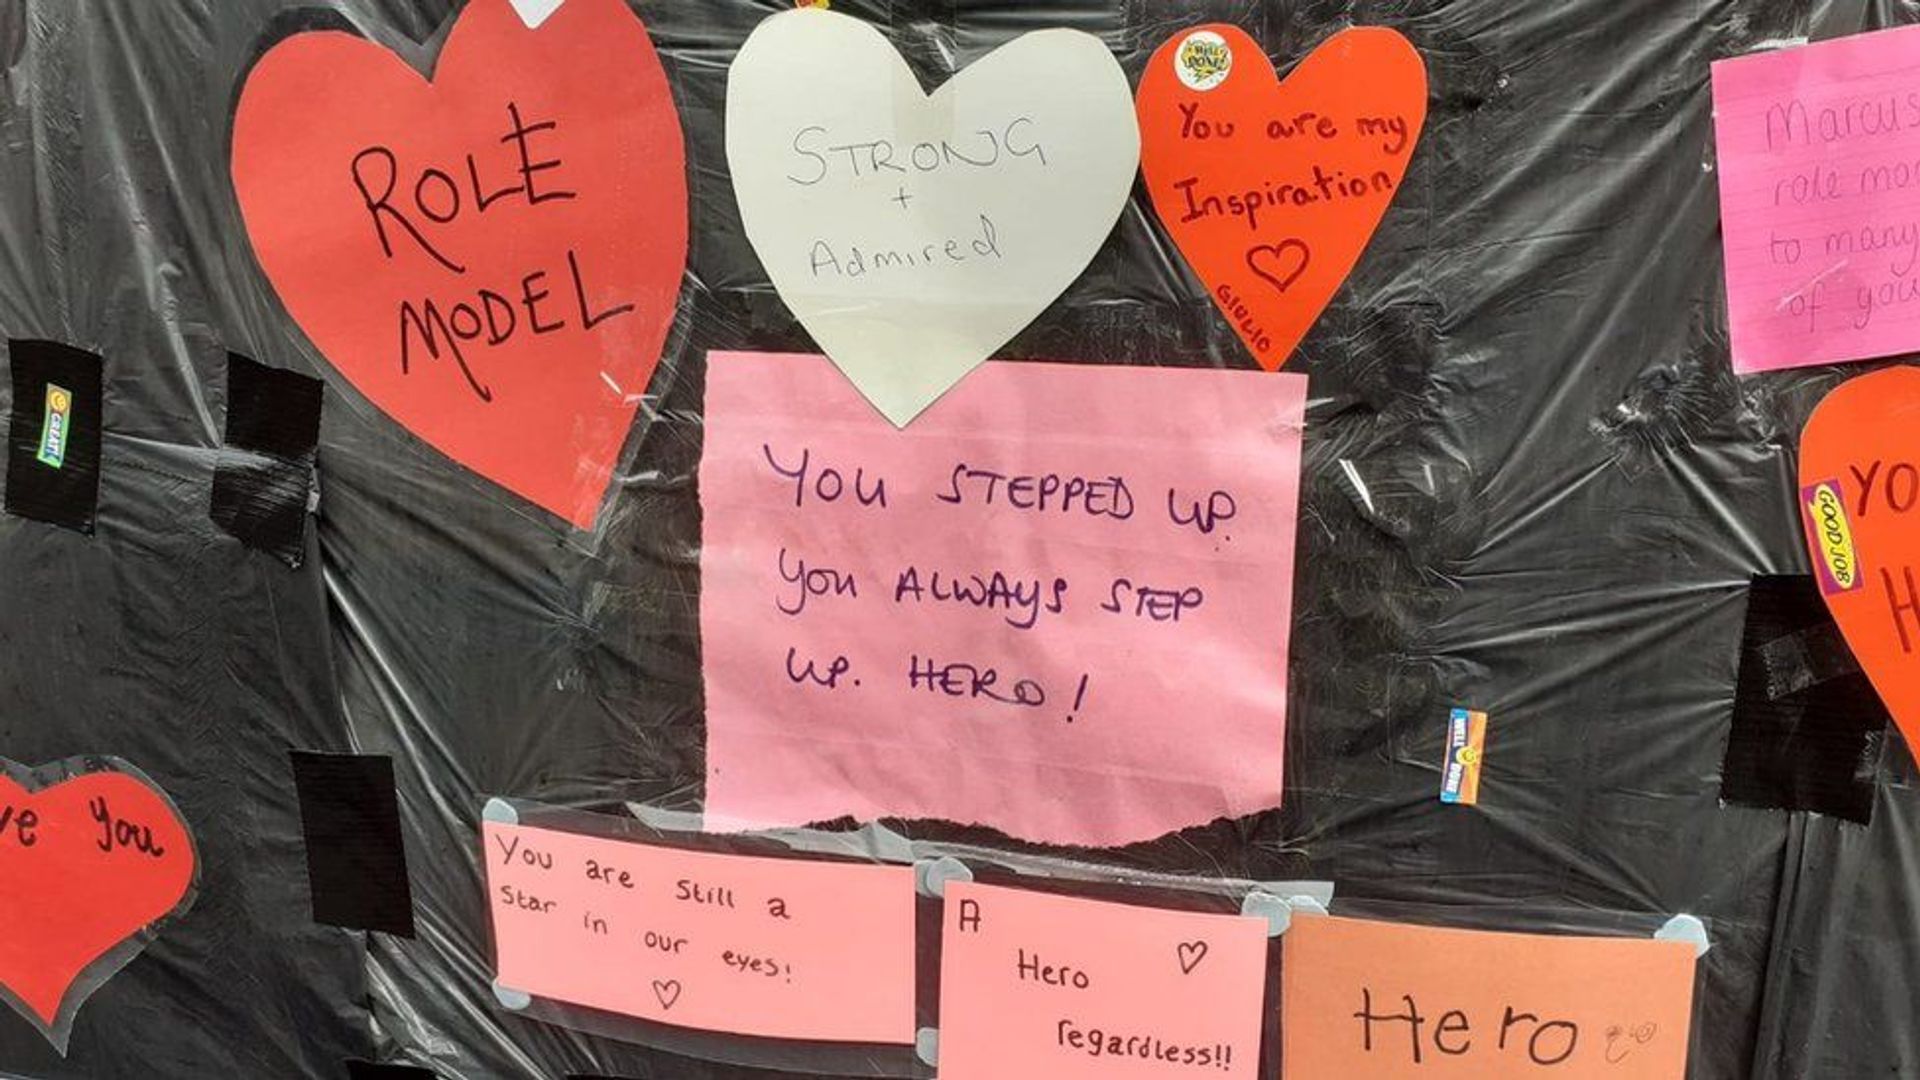 ROLE
MODEL
STRONG
+
Admired
WELL
DONE!
You are my
Inspiration
GIULIO
Marcus
role
to many
of you
GREAT!
YOU STEPPED UP.
You ALWAYS STEP
UP. HERO!
GOOD JOB
WELL DONE
You
You are still a
star in our
eyes!
A
Hero
regardless!!
Hero